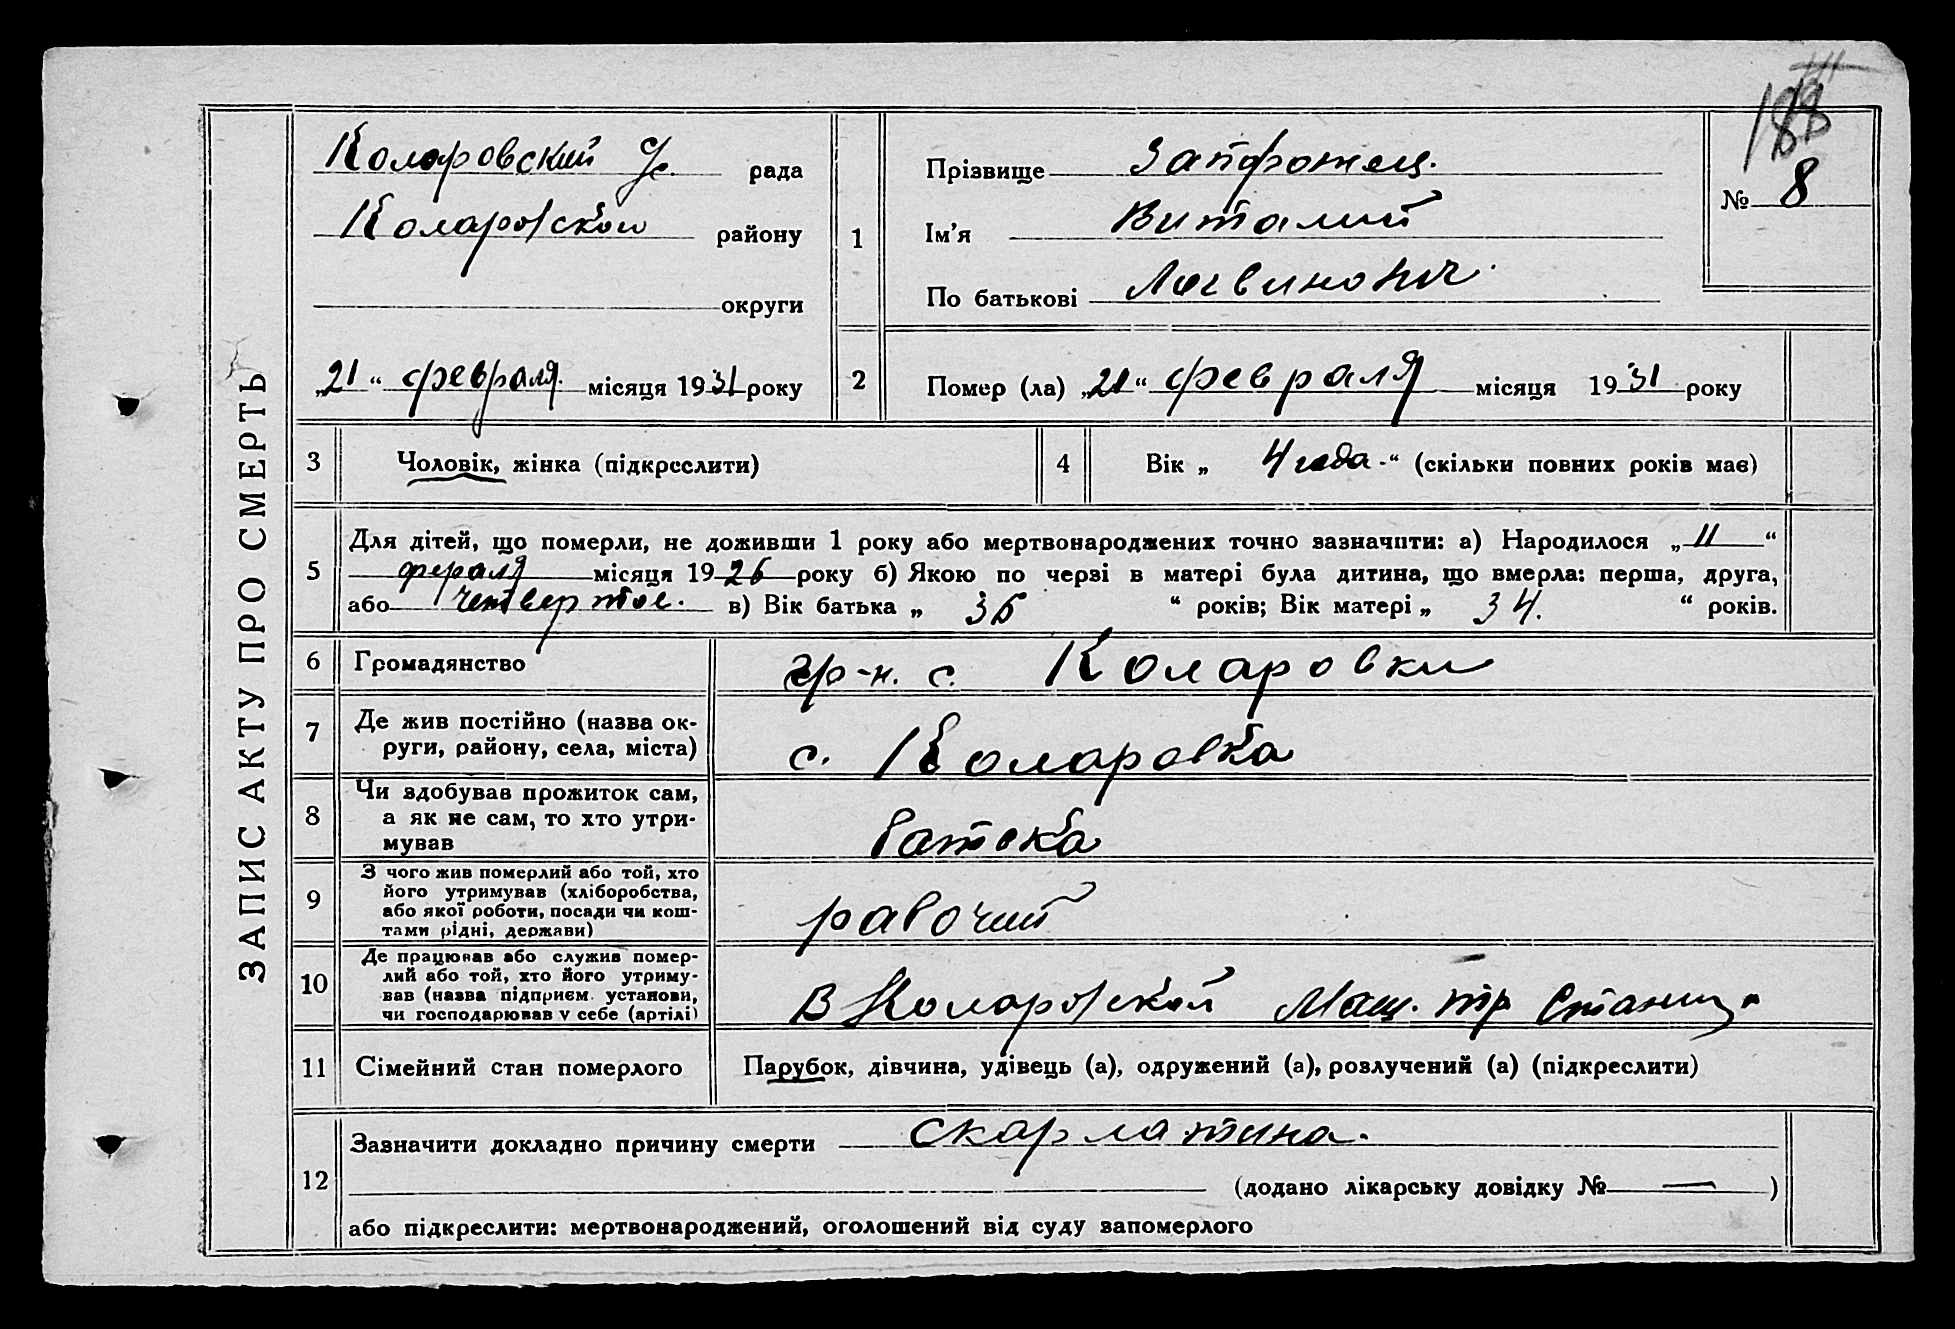 ЗАПИС АКТУ ПРО СМЕРТЬ
Коларовский с/с. рада
Коларовской району
округи
„21“ февраля. місяця 1931 року
1
Прізвище Запорожец.
Ім'я Виталий
По батькові Логвинович.
№ 8
2
Помер (ла) „21“ февраля місяця 1931 року
3
Чоловік, жінка (підкреслити)
4
Вік „4 года.“ (скільки повних років має)
5
Для дітей, що померли, не доживши 1 року або мертвонароджених точно зазначити: а) Народилося „11“
фераля місяця 1926 року б) Якою по черзі в матері була дитина, що вмерла: перша, друга,
або четвертое. в) Вік батька „36“ років; Вік матері „34.“ років.
6
Громадянство
гр-н. с. Коларовки
7
Де жив постійно (назва ок-
руги, району, села, міста)
с. Коларовка
8
Чи здобував прожиток сам,
а як не сам, то хто утри-
мував
батька
9
З чого жив померлий або той, хто
його утримував (хліборобства,
або якої роботи, посади чи кош-
тами рідні, держави)
рабочий
10
Де працював або служив помер-
лий або той, хто його утриму-
вав (назва підприєм. установи,
чи господарював у себе (артілі)
В Коларовской Маш. тр Станци
11
Сімейний стан померлого
Парубок, дівчина, удівець (а), одружений (а), розлучений (а) (підкреслити)
12
Зазначити докладно причину смерти скарлатина.
(додано лікарську довідку № — )
або підкреслити: мертвонароджений, оголошений від суду запомерлого